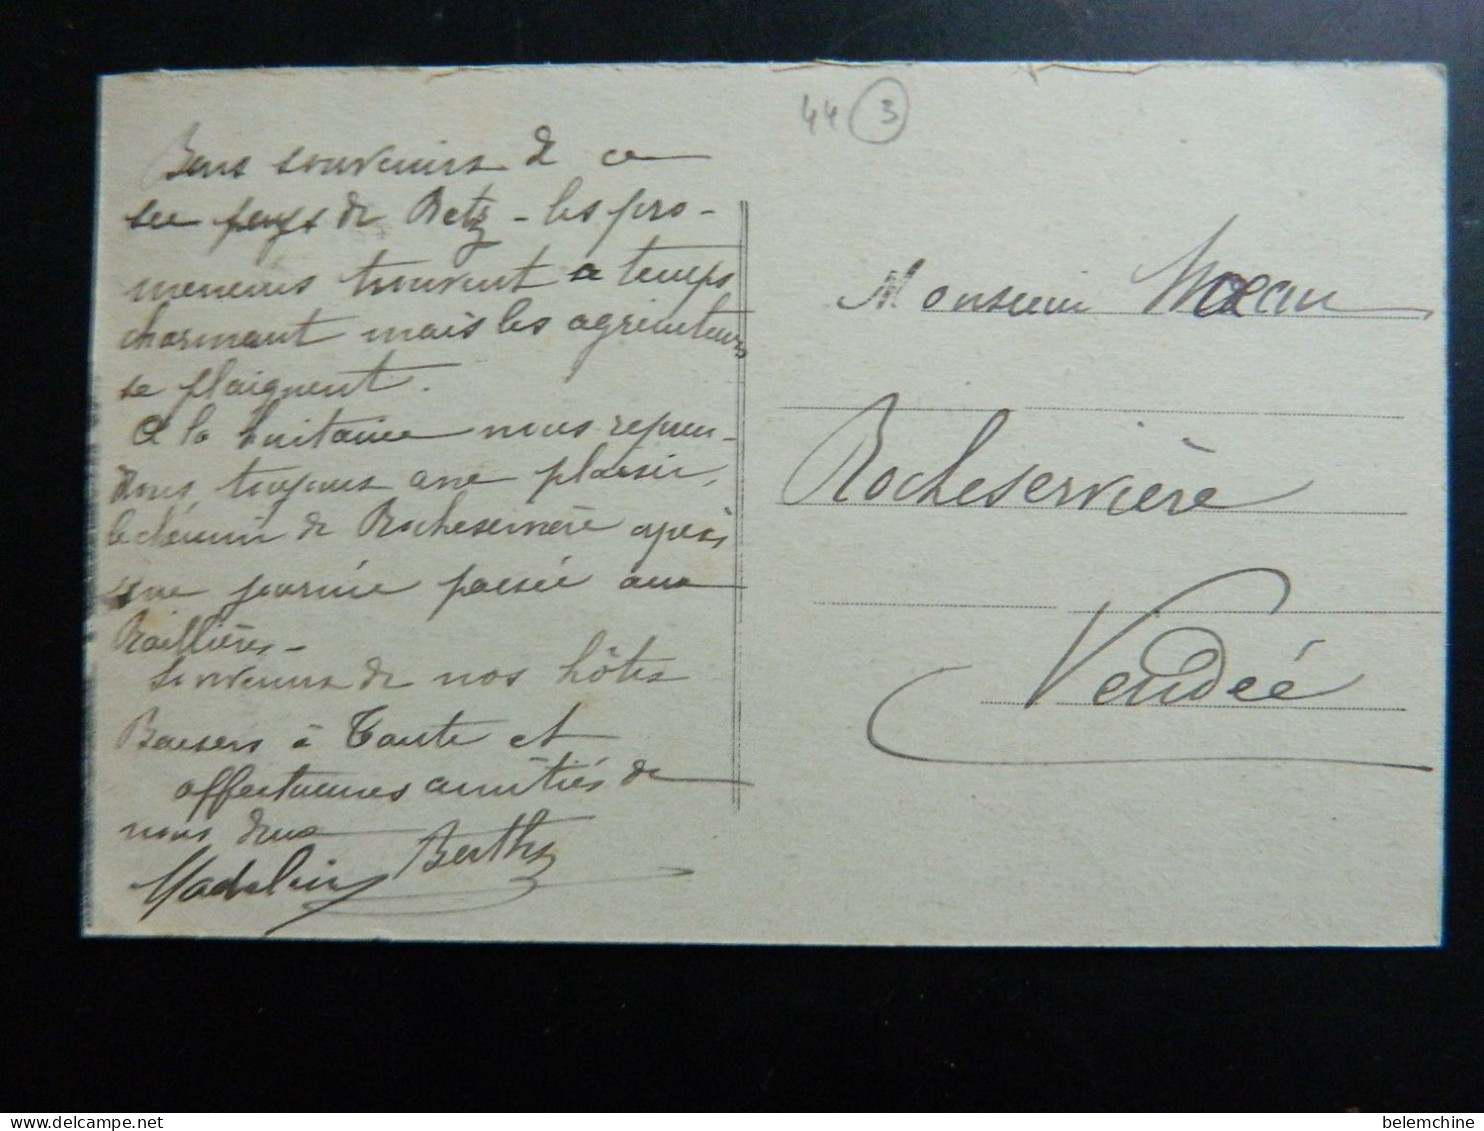 44 3
Bons souvenirs de ce
pays de Retz - les pro-
meneurs trouvent ce temps
charmant mais les agriculteurs
se plaignent.
A la huitaine nous repren-
drons toujours avec plaisir,
le chemin de Rocheservière après
une journée passée aux
Raillières -
Souvenirs de nos hôtes
Baisers à Tante et
affectueuses amitiés de
nous deux
Madeleine Berthe
Monsieur
Rocheservière
Vendée
delcampe.net
belemchine